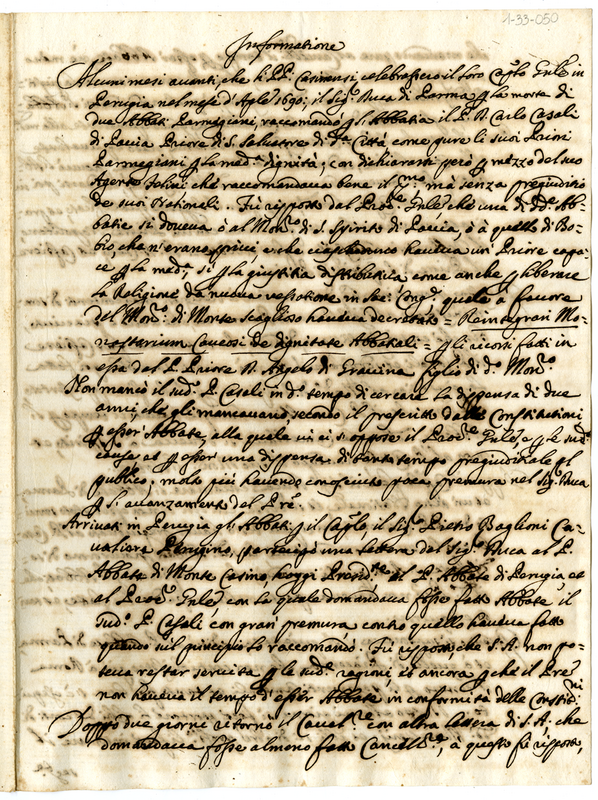 1-33-050
Informatione
Alcuni mesi avanti, che li PP. Casinensi celebrassero il loro Caplo Gnle in
Perugia nel mese d'Aple 1690; il Sigr Duca di Parma p la morte di
due Abbati Parmigiani, raccomandò p gli Abbatia il P. D. Carlo Casali
di Pavia Priore di S. Salvatore di da Città come pure li suoi Priori
Parmegiani p la meda dignità; con dichiararsi però p mezzo del suo
Agente che raccomandava bene il mà senza pregiuditio
de suoi Nationali. Fù risposto dal Procre Gnle, che una di de Ab-
batie si doveva ò al Monro di S. Spirito di Pavia, ò à quello di Bo-
bio, che n'erano privi, e che ciascheduno haveva un Priore capa-
ce p la meda, si p la giustitia distributiva come anche p liberare
la Religione da nuova vessatione in Sac. Cong. quale a favore
del Monro di Monte Scaglioso haveva decretato = Reintegrari Mo-
nasterium Caveosi de dignitate Abbatiali = p li ricorsi fatti in
essa dal P. Priore D. Angelo di Gravina figlio di do Monro
Non mancò il sudo P. Casali in do tempo di cercare la dispensa di due
anni, che gli mancavano secondo il prescritto dalle Constitutioni
p esser Abbate, alla quale vi si oppose il Procre Gnle, e p le sude
cause et p esser una dispensa di tanto tempo pregiuditiale al
publico; molto più havendo conosciuto poca premura nel Sigr Duca
p l'avanzamento del Pre
Arrivati in Perugia gli Abbati p il Caplo, il Sigr Pietro Baglioni Ca-
valiere Perugino, partecipò una lettera del Sigr Duca al P.
Abbate di Monte Casino hoggi Presidte al P. Abbate di Perugia et
al Procre Gnle con la quale domandava fosse fatto Abbate il
sudo P. Casali con gran premura contro quello haveva fatto
quando sul principio lo raccomandò. Fù risposto, che S. A. non po-
teva restar servita p le sude ragioni, et ancora p che il Pre
non haveva il tempo d'esser Abbate in conformità delle Constitni
Doppo due giorni ritornò il Cavalre con altra lettera di S. A. che
domandava fosse almeno fatto Cancellre, à questo fù risposto,